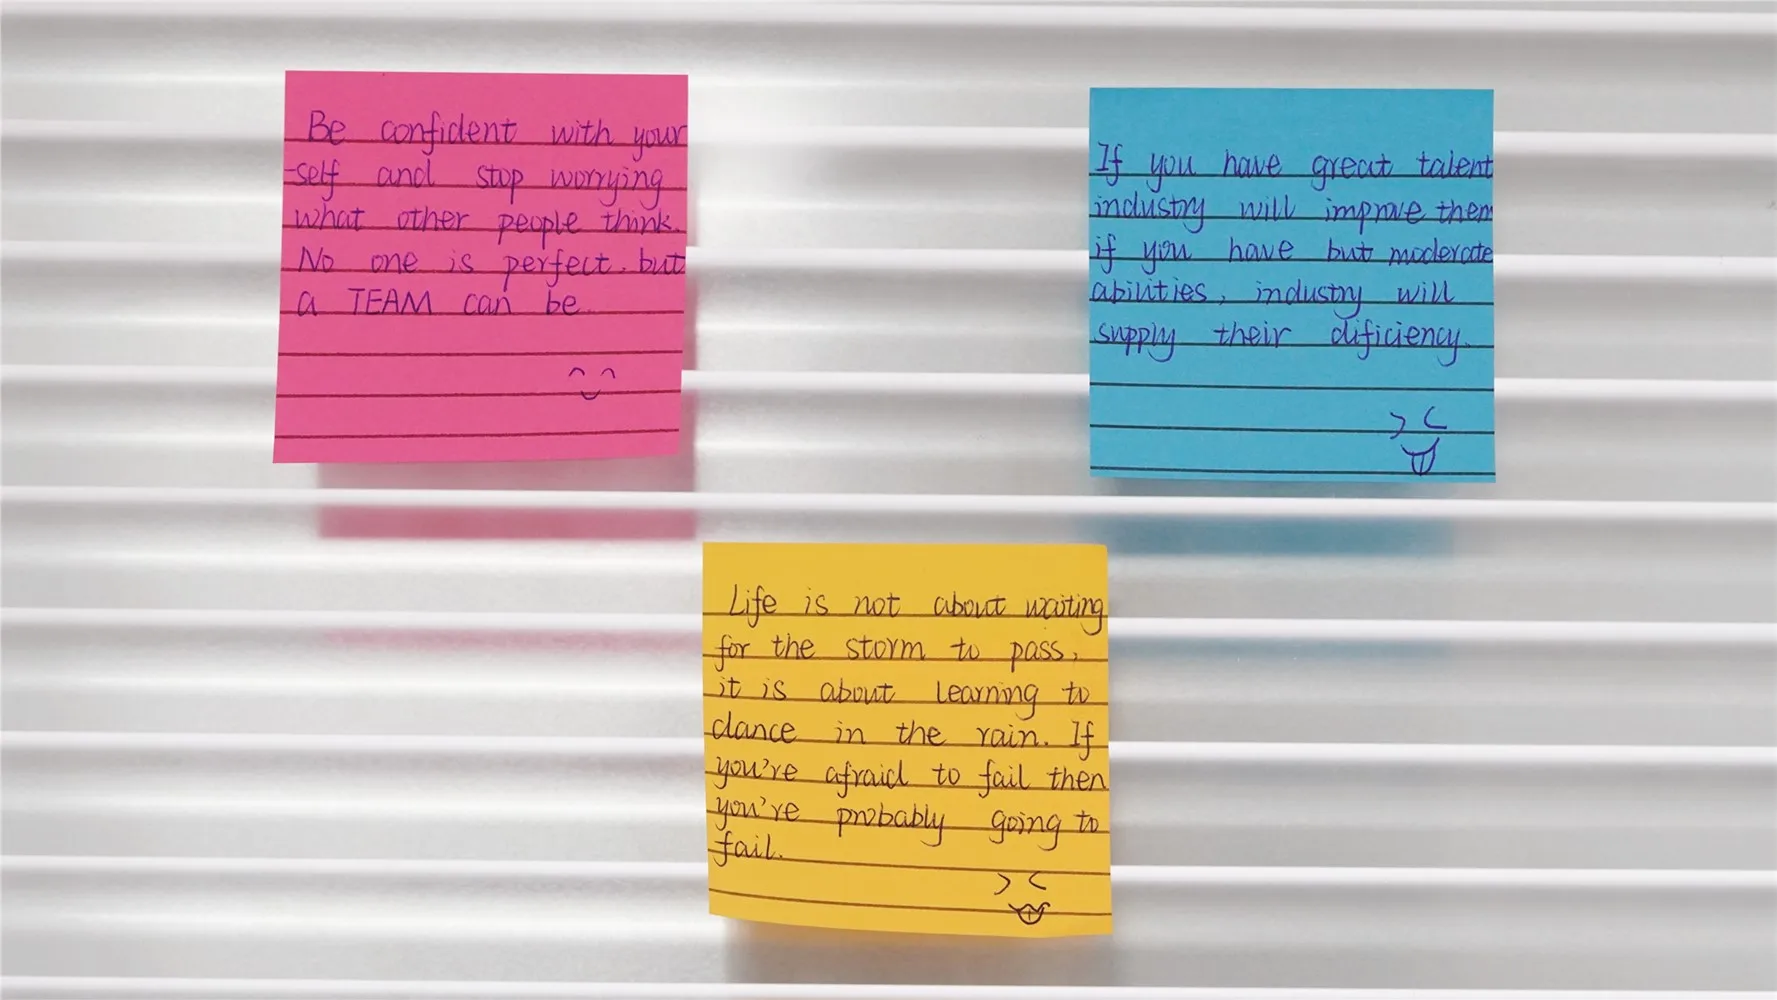 Be confident with your
-self and stop worrying
what other people think.
No one is perfect, but
a TEAM can be.
If you have great talent
industry will improve them
if you have but moderate
abilities, industry will
supply their dificiency.
Life is not about waiting
for the storm to pass,
it is about learning to
dance in the rain. If
you're afraid to fail then
you're probably going to
fail.